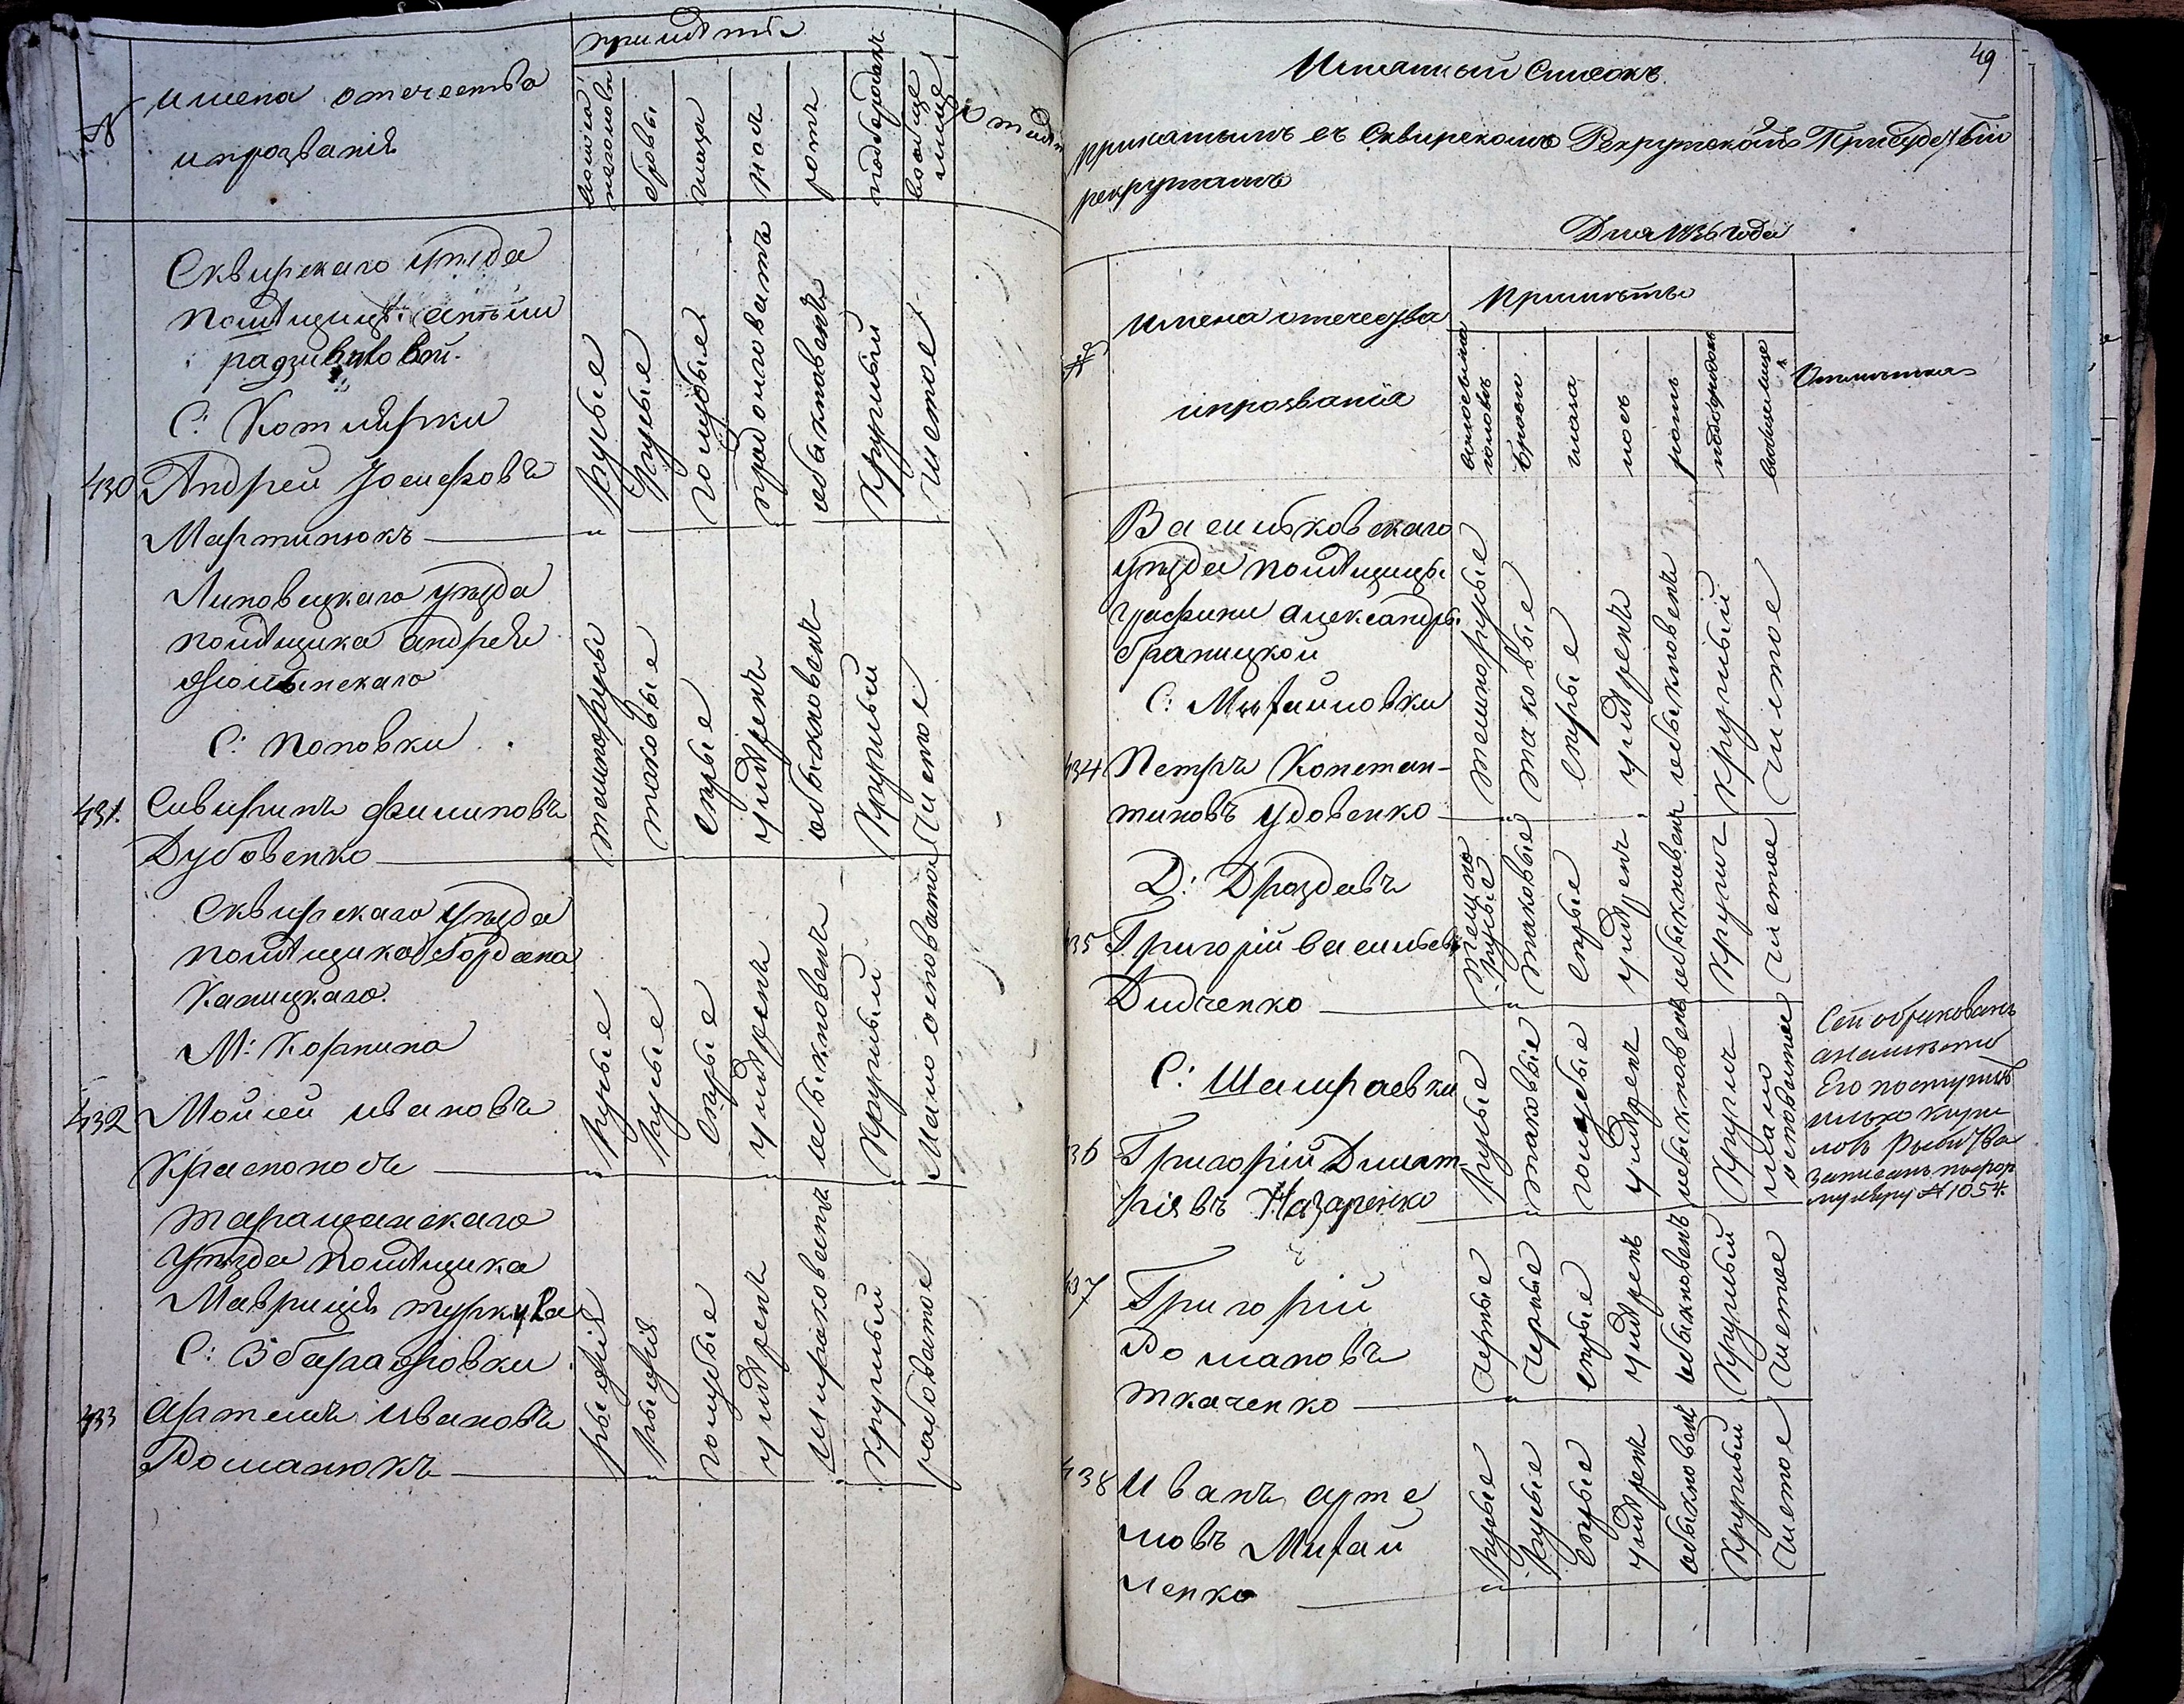 №
имена отечества
и прозванія
примѣты
волоса
на голове
брови
глаза
носъ
ротъ
подбородокъ
вообще
лице
Сквирскаго уѣзда
помѣщицы
радзивиловой.
С: Котлярки
430 Андрей Іосифовъ
Мартинюкъ
русые
русые
голубые
продолговатъ
обыкновенъ
круглый
чистое
Липовецкаго уѣзда
помѣщика андрея
С: Поповки
431. Сиверинъ Филиповъ
Дубовенко
темнорусы
таковые
серые
умѣренъ
обыкновенъ
круглый
Чистое
Сквирскаго уѣзда
помѣщика Гордона
Капицкаго.
М: Корнина
432 Мойсей ивановъ
русые
русые
серые
умѣренъ
обыкновенъ
круглый
Мало осповатое
таращанскаго
уѣзда помѣщика
Мавриція туркула
433 артемъ ивановъ
Романюкъ
рыжія
рыжія
голубые
умѣренъ
круглый
рабоватое
49
Имянный Списокъ
принятымъ въ Сквирскомъ Рекрутскомъ Присудствіи
рекрутамъ
Дня 1836 года
№
имена отечества
ипрозванія
примѣты
брови
глаза
носъ
ротъ
подбородокъ
вообще лице
Отмѣтка
Василковскаго
уѣзда помѣщицы
графини александры
браницкой
С: Михайловки
434 Петръ Констан-
тиновъ Удовенко
темнорусые
таковые
серые
умѣренъ
обыкновенъ
круглый
чистое
Д: Дроздовъ
435 Григорій васильевъ
Дидченко
темно
русые
таковые
серые
умѣренъ
обыкновенъ
кругл
чистое
С: Шамраевки
436 Григорій Дмит-
ріевъ Назаренко
русые
таковые
голубые
умѣренъ
обыкновенъ
кругл
мало
осповатое
Сей обракованъ
анаместо
Его поступилъ
записанъ пофор
муляру № 1054.
437 Григорій
Романовъ
ткаченко
черные
черные
серые
умѣренъ
обыкновенъ
круглый
чистое
438 Иванъ арте
мовъ Михай
ленко
русые
русые
серые
умѣренъ
обыкновенъ
круглый
чистое